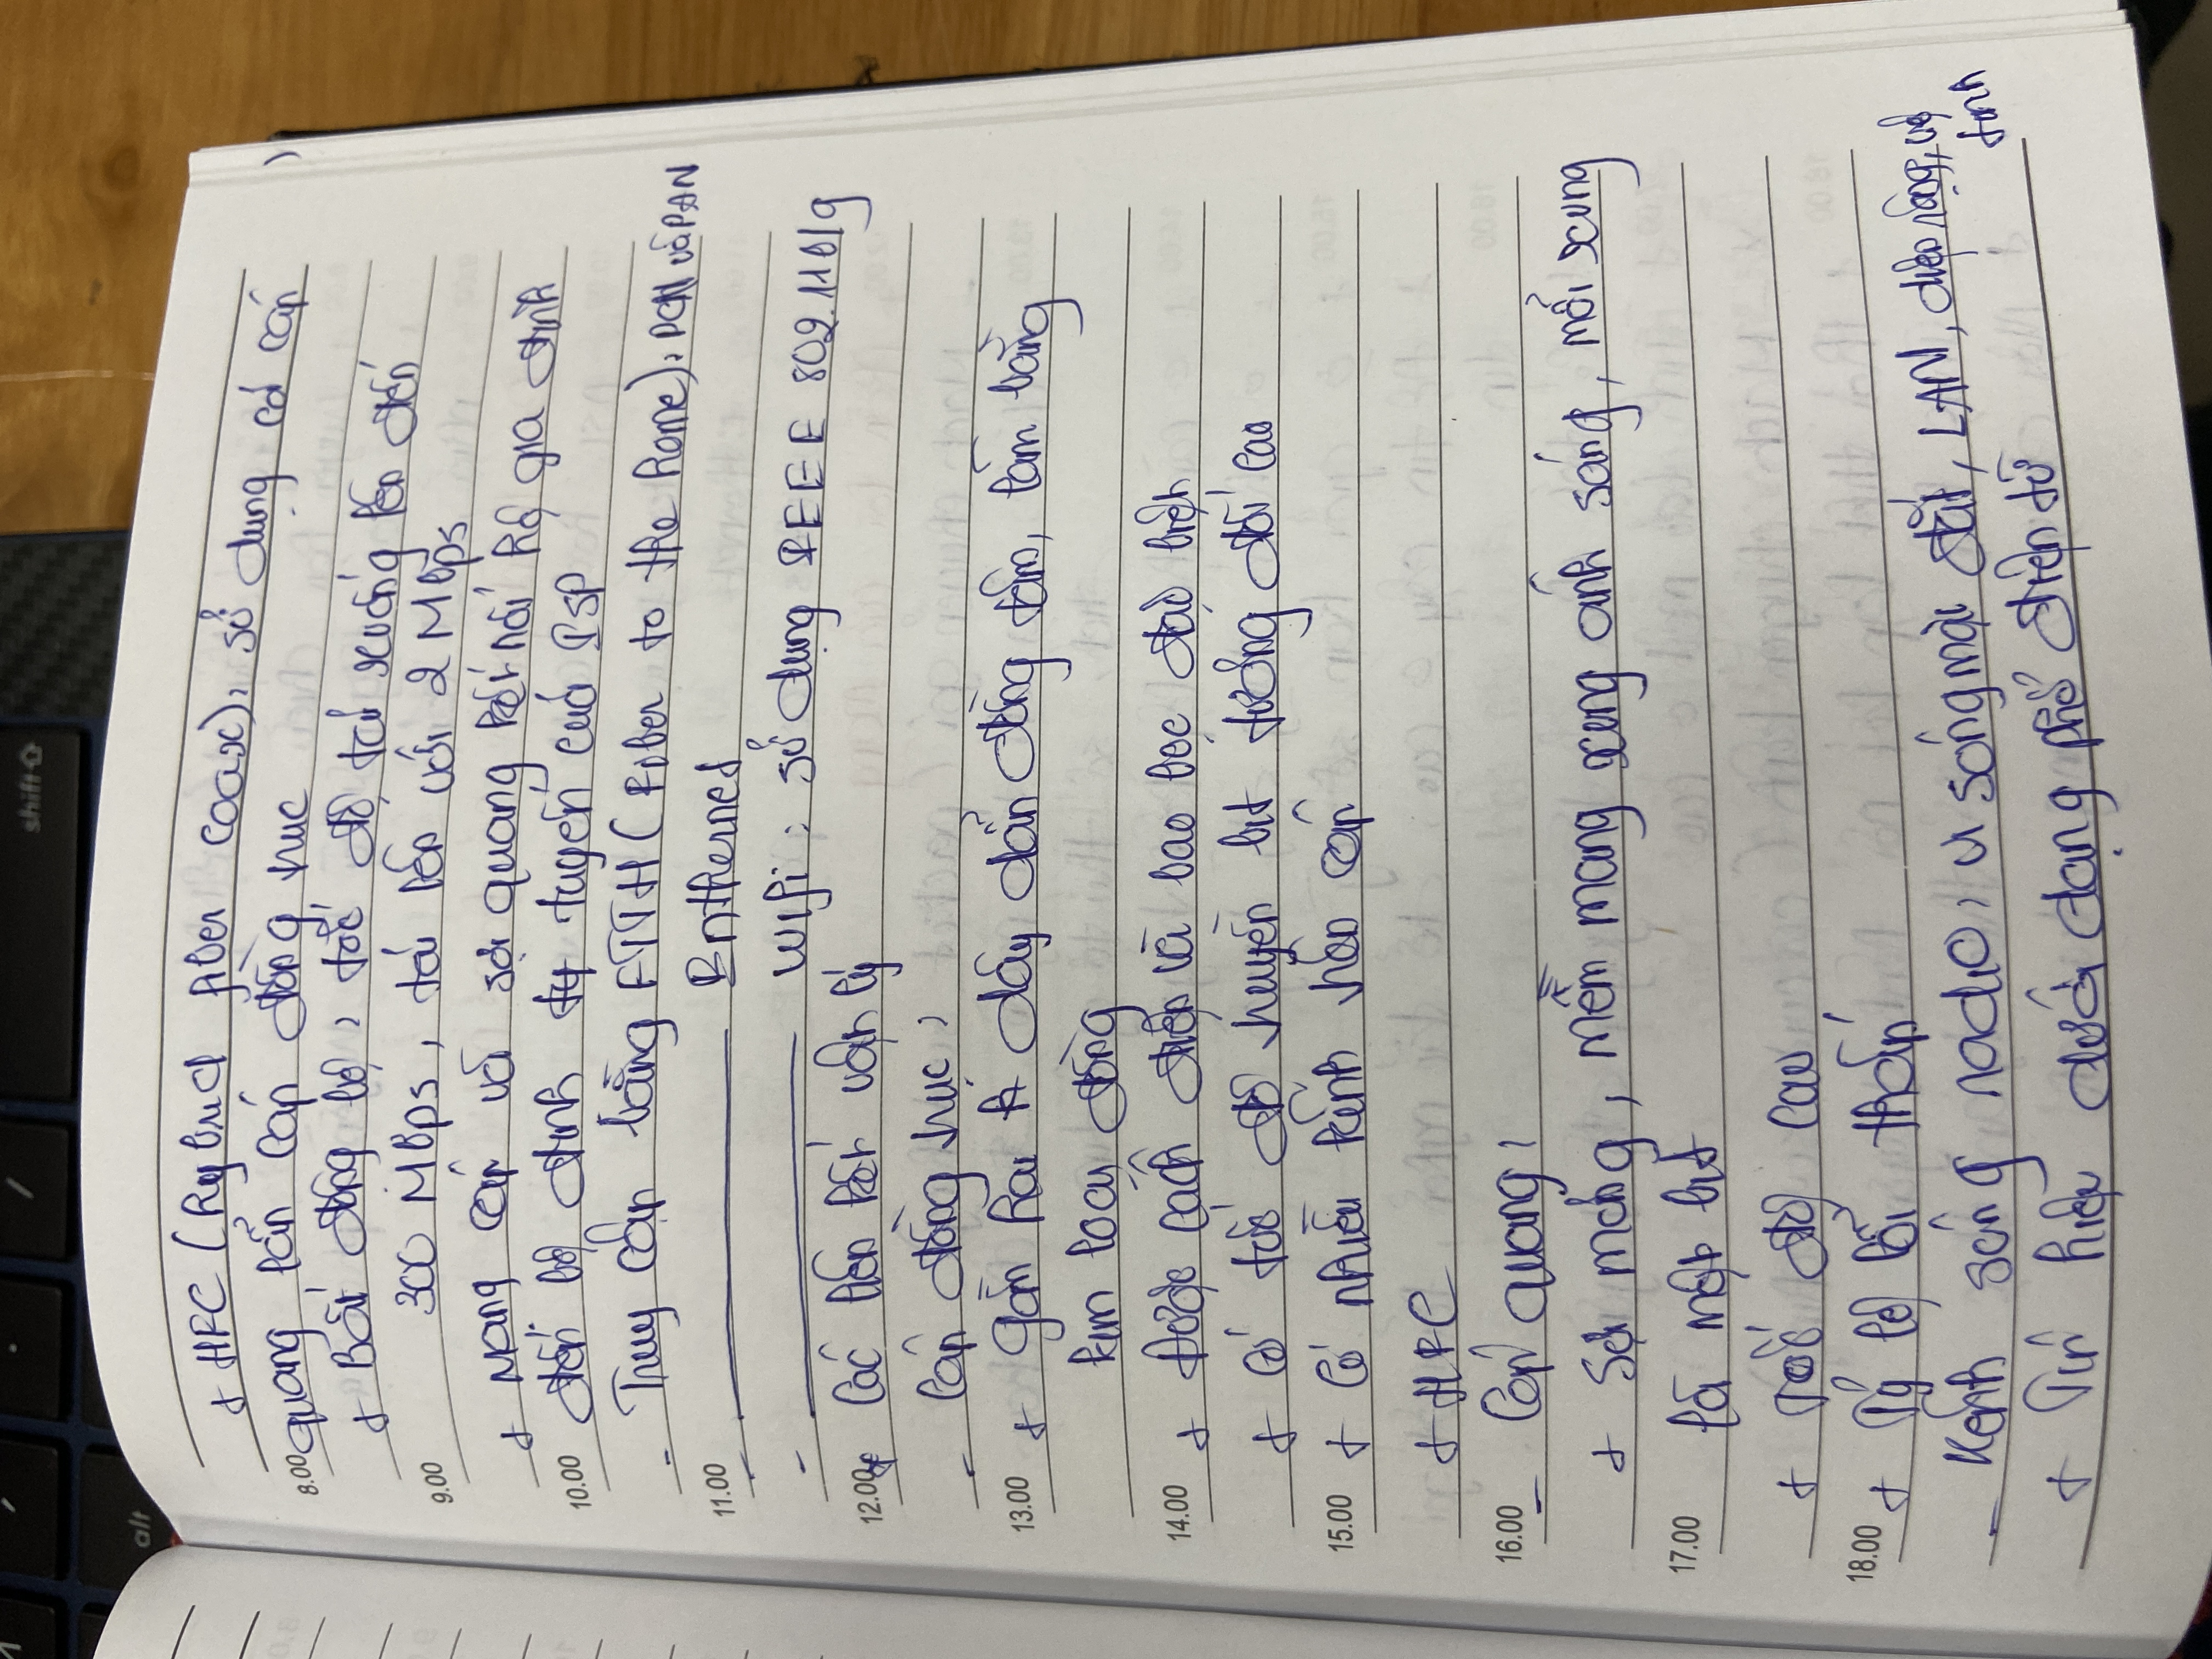 shift
alt
+ HFC (Hybrid fiber coax), sử dụng cả cáp
8.00 quang lẫn cáp đồng trục
+ Bất đồng bộ, tốc độ tải xuống lên đến
9.00 300 Mbps, tải lên với 2 Mbps
+ Mạng cáp và sợi quang kết nối hộ gia đình
10.00 đến bộ định tuyến của ISP
- Truy cập bằng FTTH (Fiber to the home), và PAN
11.00 - Enthernet
- Wifi: sử dụng IEEE 802.11b/g
12.00 * Các liên kết vật lý
- Cáp đồng trục:
13.00 + gồm hai dây dẫn đồng tâm, làm bằng
kim loại đồng
14.00 + Được cách điện và bao bọc đặc biệt
+ Có tốc độ truyền bit tương đối cao
15.00 + Có nhiều kênh trên cáp
+ HFC
16.00 - Cáp quang:
+ Sợi mỏng, mềm mang xung ánh sáng, mỗi xung
17.00 là một bit
+ Tốc độ cao
18.00 + Tỷ lệ lỗi thấp
- Kênh sóng radio: vi sóng mặt đất, LAN, diện rộng, vệ
tinh
+ Tín hiệu dưới dạng phổ điện từ